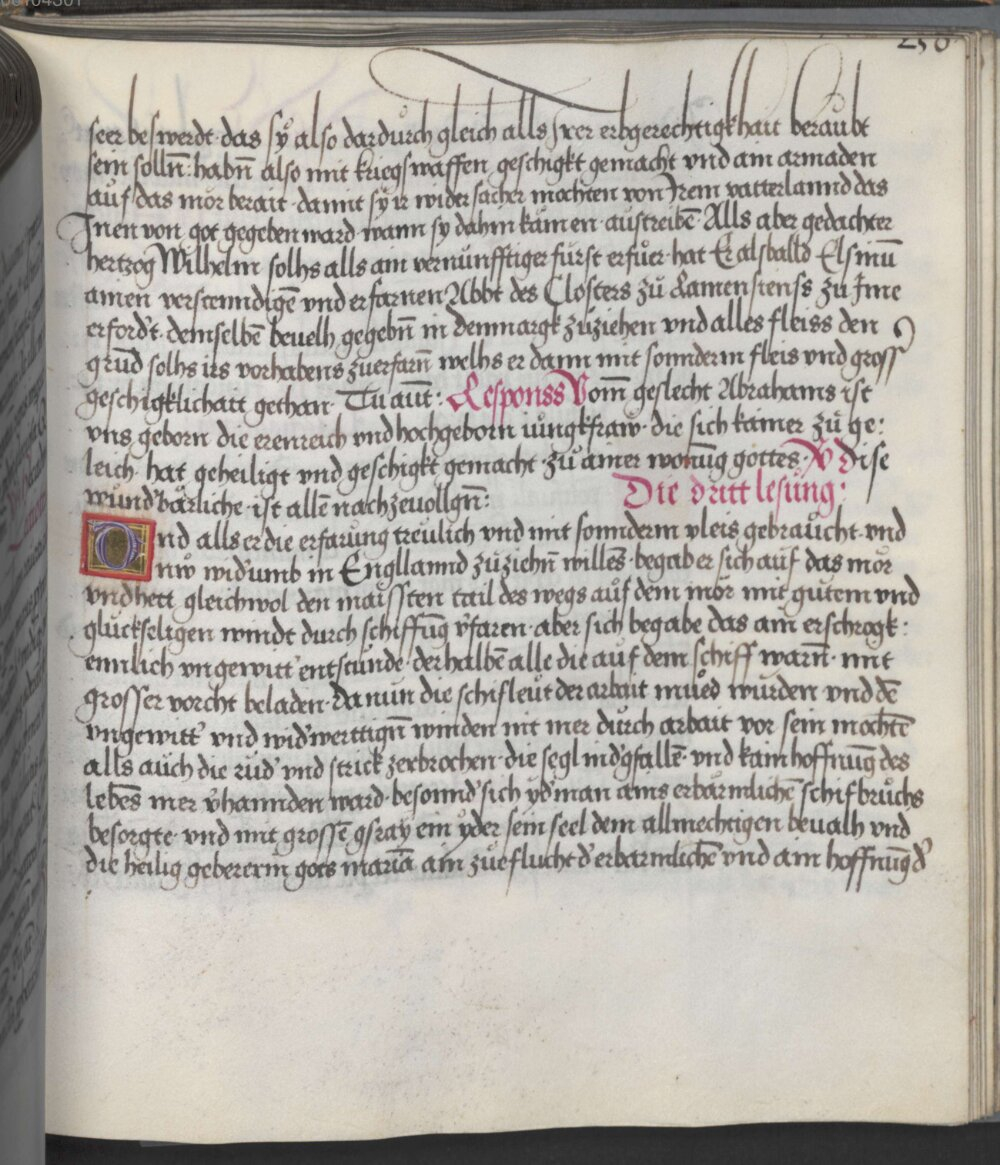 seer beswerdt · das sÿ also dardurch gleich alls Irer erbgerechtigkhait beraubt
sein solln̄ : habn̄ also mit kriegs waffen geschigkt gemacht vnd am armaden
auf das mör berait · damit sÿ ir wider sacher mochten von Irem vatterlannd das
Inen von got gegeben ward · wann sy dahin kämen · austreibē · Alls aber gedachter
hertzog Wilhelm solhs alls ain vernunfftiger furst erfuer · hat Er alsballd Elsinū
ainen verstenndigē vnd erfarnen Abbt des Closters zů Ramensienss zu Ime
erford't · demselbē beuelh gegebn̄ in denmargk zuziehen vnd alles fleiss den
grūd solhs irs vorhabens zuerfarn̄ welhs er dann mit sonnderm fleis vnd gross
geschigklichait gethan · Tu aūt : Responss Vom̄ geslecht Abrahams ist
vns geborn die erenreich vnd hochgeborn iungkfraw · die sich kainer zů ge :
leich · hat geheiligt vnd geschigkt gemacht zů ainer wonūg gottes · V dise
wund'bärliche · ist allē nach zeuollgn̄ : Die dritt lesung :
Vnd alls er die erfarung treulich vnd mit sonnderm vleis gebraucht · vnd
nw wid'umb in Engllannd zuziehn̄ willēs · begab er sich auf das mör
vnd hett gleichwol den maissten tail des wegs auf dem mör mit gutem vnd
gluckseligen windt durch schiffūg v'faren · aber sich begabe das ain erschrogk :
ennlich vngewitt' entstunde · derhalbē alle die auf dem schiff warn̄ · mit
grosser vorcht beladen · Da nun die schifleut der arbait mued wurden · vnd dē
vngewitt' vnd wid'werttign̄ winden nit mer durch arbait vor sein mochtē
alls auch die rud' vnd strick zerbrochen · die segl nid'gfallē · vnd kain hoffnūg des
lebēs mer v'hannden ward · besonnd' sich yd'man ains erbärmlichē schifbruchs
besorgte · vnd mit grossē gsray ein yder sein seel dem allmechtigen beualh vnd
die heilig gebererin gots mariā ain zueflucht d' erbarmlichē vnd ain hoffnūg d'